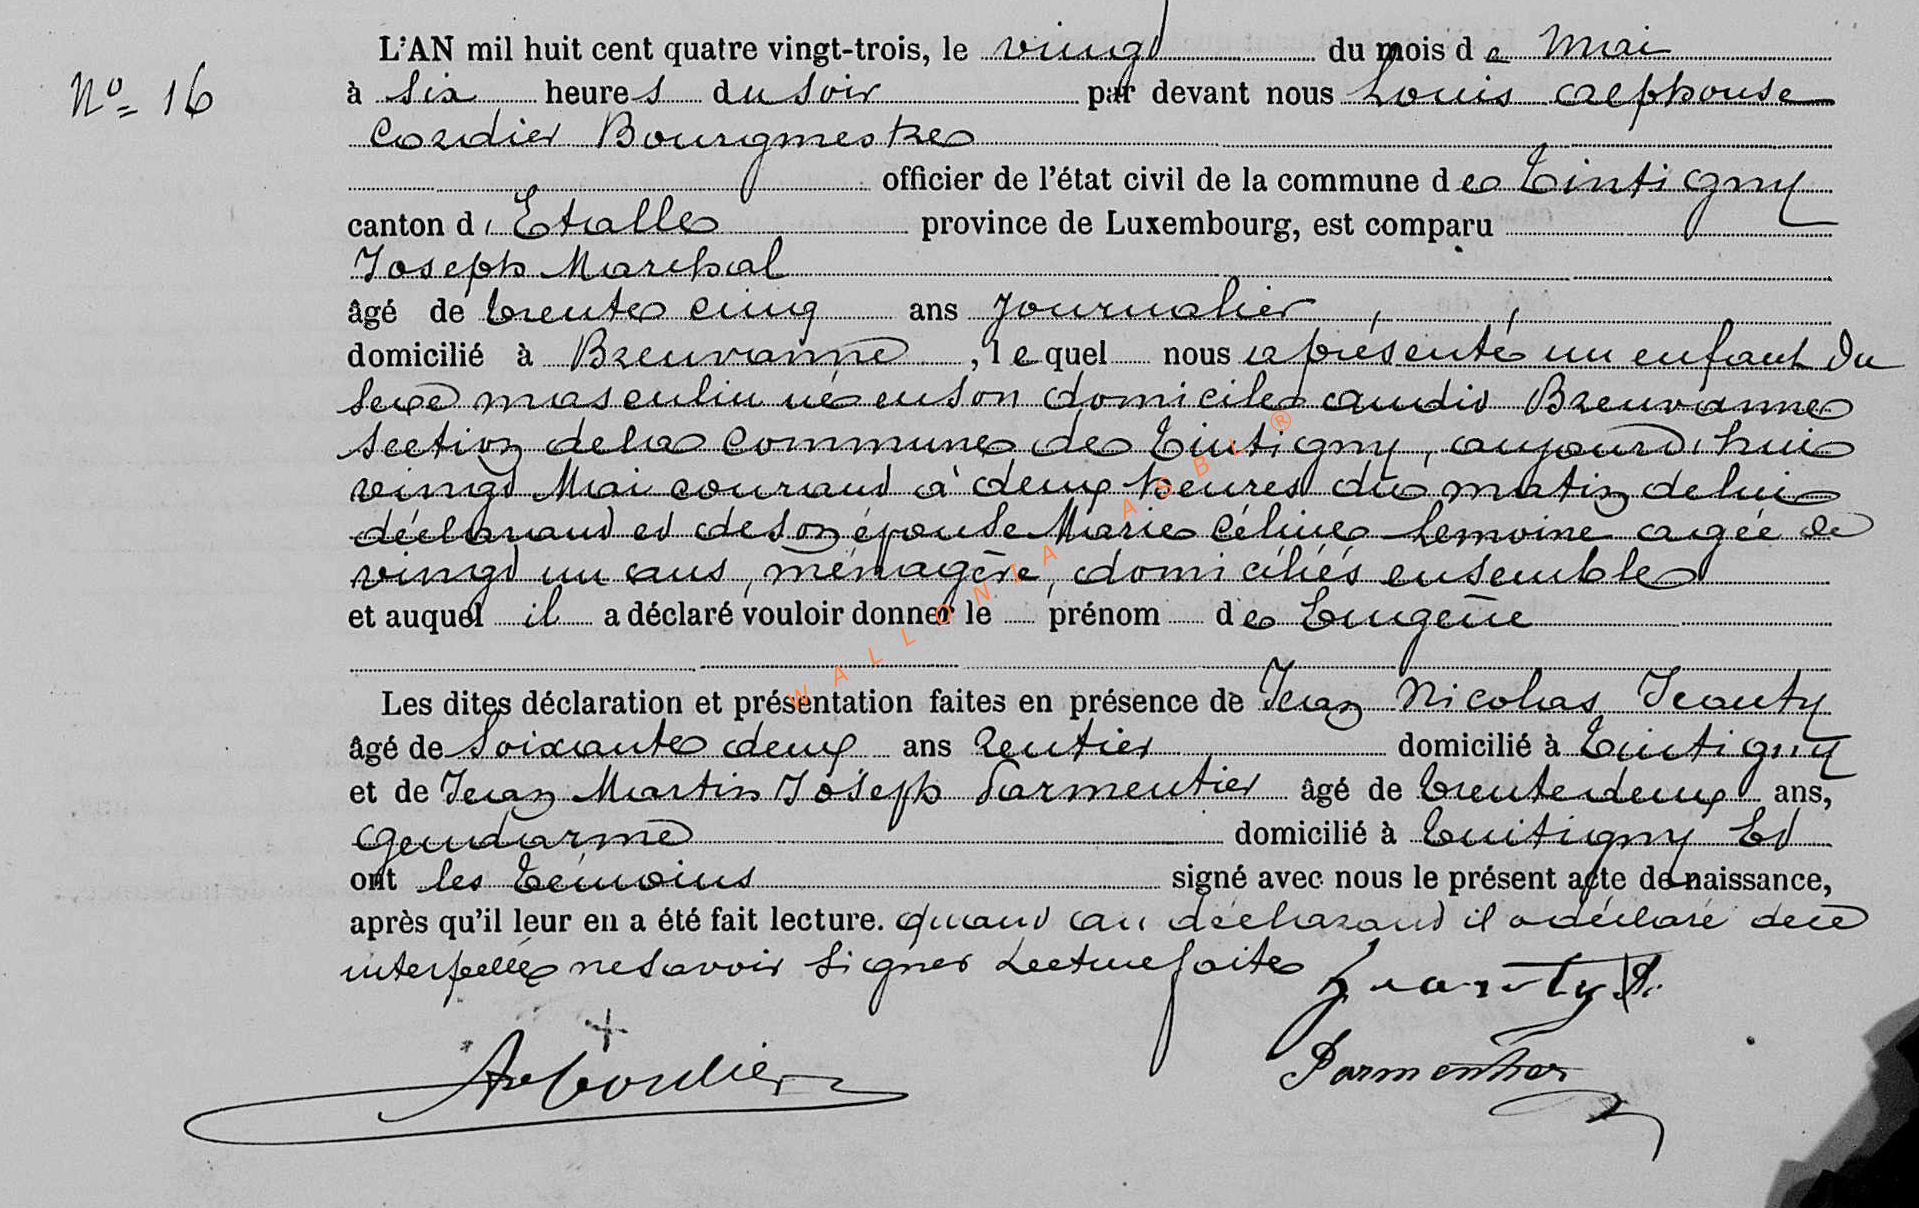 L'AN mil huit cent quatre vingt-trois, le vingt du mois de Mai
N° 16
à six heures du soir par devant nous Louis Alphonse
Cordier Bourgmestre
officier de l'état civil de la commune de Tintigny
canton d'Etalle province de Luxembourg, est comparu
Joseph Marchal
âgé de trente cinq ans Journalier,
domicilié à Breuvanne, lequel nous a présenté un enfant du
sexe masculin né en son domicile audit Breuvanne
section de la commune de Tintigny, aujourd'hui
vingt Mai courant à deux heures du matin de lui
déclarant et de son épouse Marie Céline Lemoine agée de
vingt un ans, ménagère, domiciliés ensemble
et auquel il a déclaré vouloir donner le prénom de Eugène
Les dites déclaration et présentation faites en présence de Jean Nicolas Jeanty
âgé de soixante deux ans rentier domicilié à Tintigny
et de Jean Martin Joseph Parmentier âgé de trente deux ans,
gendarme domicilié à Tintigny Et
ont les témoins signé avec nous le présent acte de naissance,
après qu'il leur en a été fait lecture. quant au déclarant il a déclaré de ce
interpellé ne savoir signer Lecture faite
Jeanty
A Cordier
Parmentier
WALLONIA ASBL ®